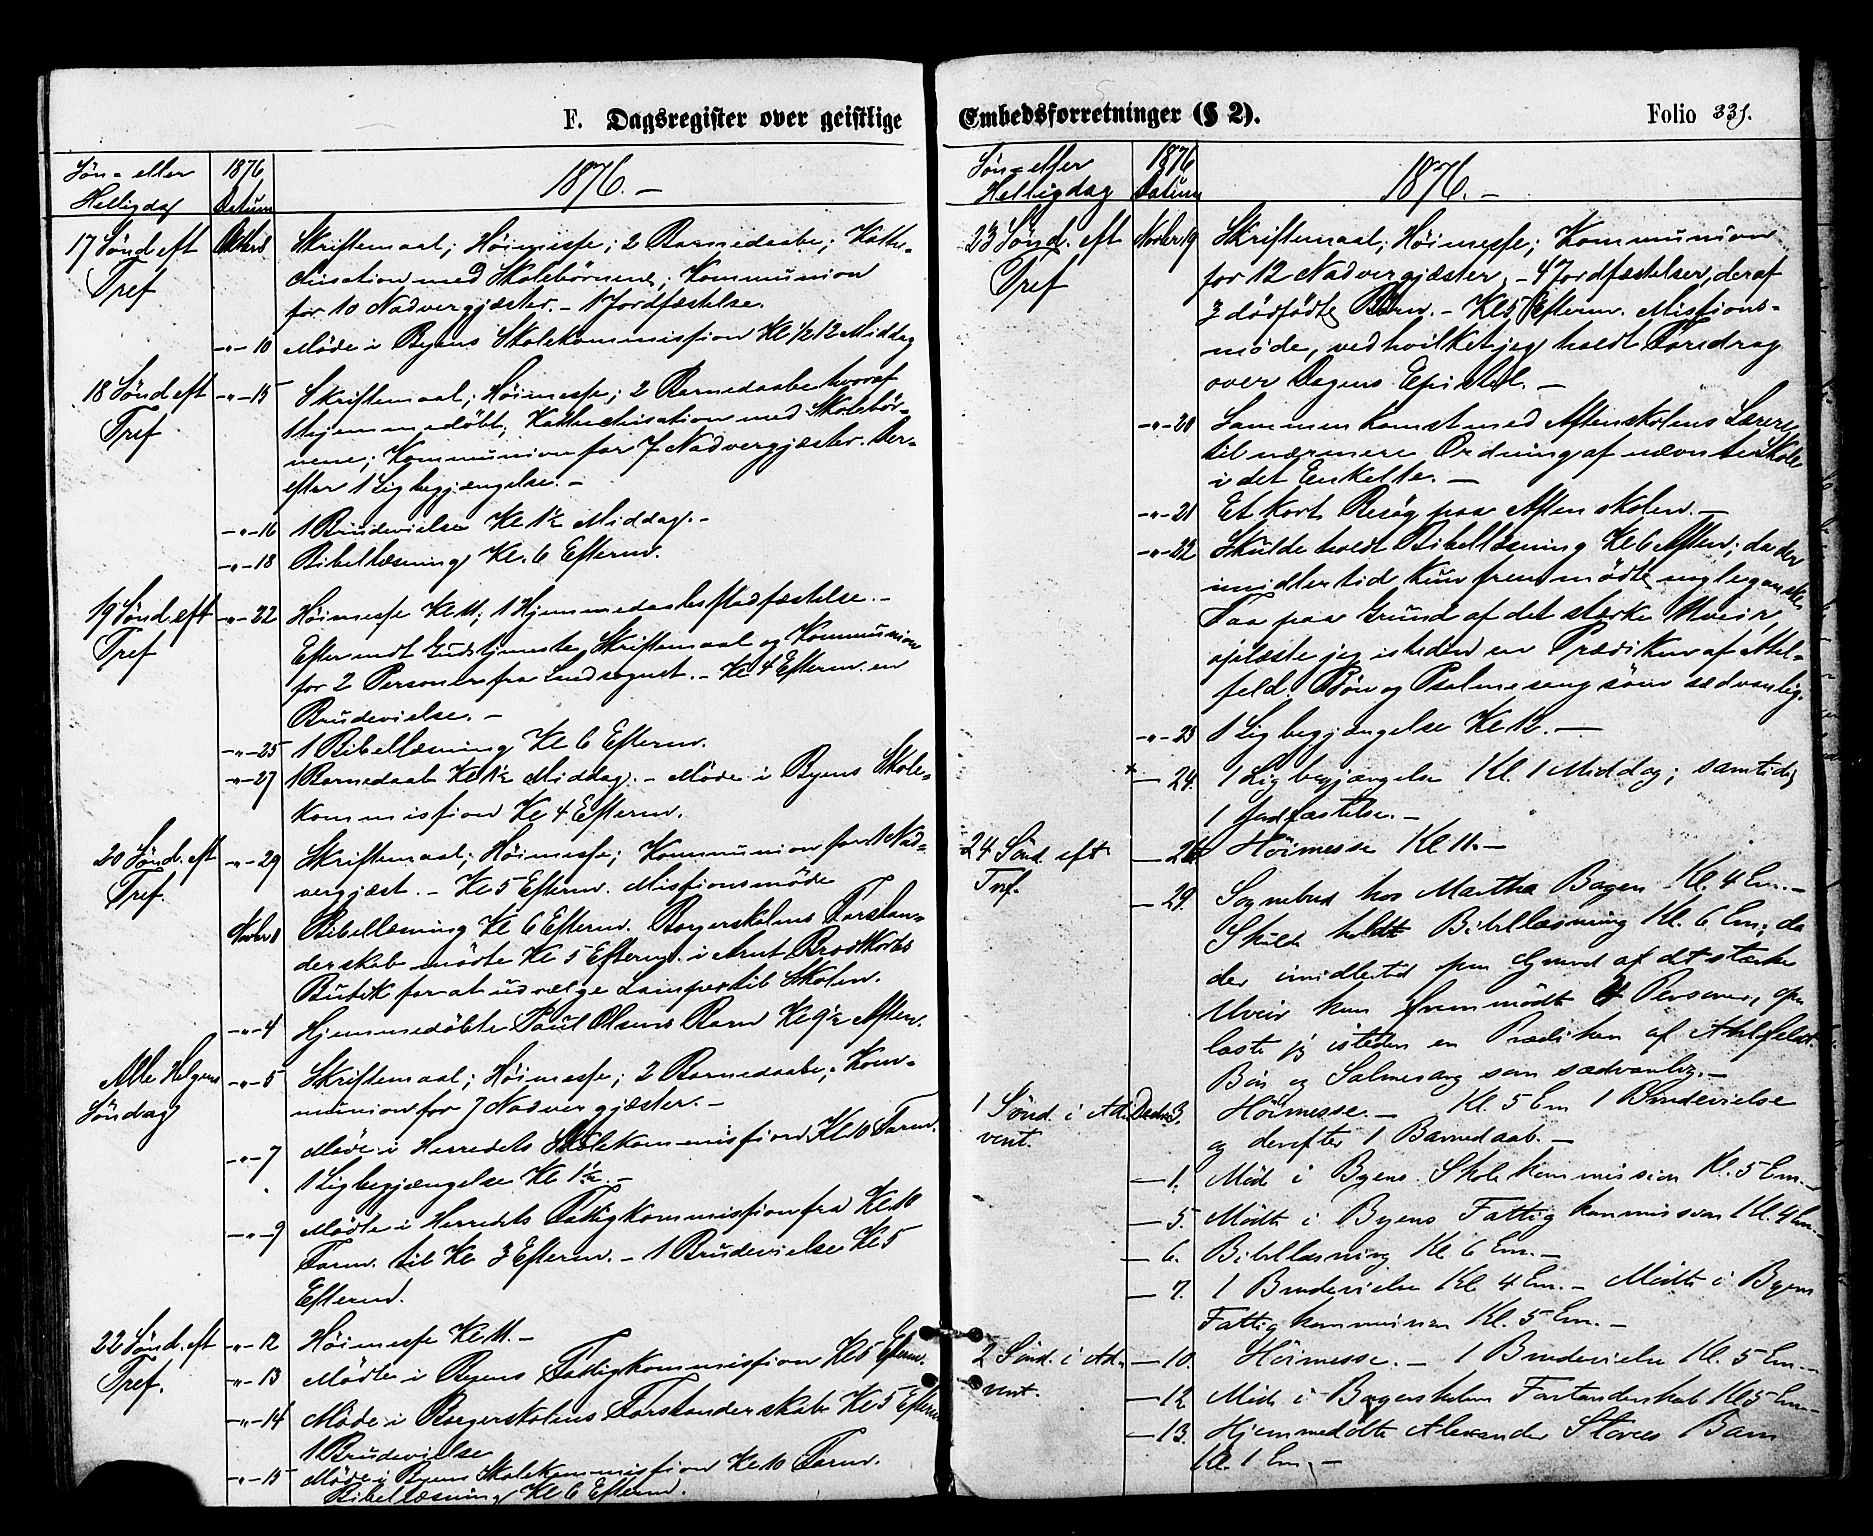 F. Dagsregister over geistlige
Søn- eller Helligdag
1876 Datum
1876. -
17 Sønd eft Tref
Oktbr 8
Skriftemaal; Høimesse; 2 Barnedaabe; Kathe-
chisation med Skolebørnene; Kommunion
for 10 Nadvergjæster. - 1 Jordfæstelse.
-"- 10 Møde i Byens Skolekommission Kl ½12 Middag
18 Sønd eft Tref
-"- 15 Skriftemaal; Høimesse; 2 Barnedaabe hvoraf
1 hjemmedøbt; Kathechisation med Skolebør-
nene; Kommunion for 7 Nadvergjæster. Der-
efter 1 Ligbegjængelse. -
-"- 16 1 Brudevielse Kl 1½ Middag. -
-"- 18 Bibellæsning Kl. 6 Efterm.
19 Sønd. eft Tref
-"- 22 Høimesse Kl 11; 1 Hjemmedaabs stadfæstelse. -
Efter endt Gudstjeneste, Skriftemaal og Kommunion
for 2 Personer fra Landsognet. - Kl 4 Efterm. en
Brudevielse. -
-"- 25 1 Bibellæsning Kl 6 Efterm.
-"- 27 1 Barnedaab Kl 1½ Middag. - Møde i Byens Skole-
kommission Kl 4 Efterm.
20 Sønd. eft Tref.
-"- 29 Skriftemaal; Høimesse; Kommunion for 1 Nad-
vergjæst. - Kl 5 Efterm. Missionsmøde
Novbr 1 Bibellæsning Kl 6 Efterm. Borgerskolens Forstan-
derskab mødte Kl 5 Efterm. i Arnt Brodtkorbs
Butik for at udvælge Lamper til Skolen.
-"- 4 Hjemmedøbte Paul Olsens Barn Kl 9½ Aften.
Alle Helgens Søndag
-"- 5 Skriftemaal; Høimesse; 2 Barnedaabe; Kom-
munion for 7 Nadvergjæster. -
-"- 7 Møde i Herredets Skolekommission Kl 10 Form.
1 Ligbegjængelse Kl 1½. -
-"- 9 Mødte i Herredets Fattigkommission fra Kl 10
Form. til Kl 3 Efterm. - 1 Brudevielse Kl 5
Efterm.
22 Sønd. eft Tref.
-"- 12 Høimesse Kl 11. -
-"- 13 Mødte i Byens Fattigkommission Kl 5 Efterm.
-"- 14 Møde i Borgerskolens Forstanderskab Kl 5 Efterm
1 Brudevielse
-"- 15 Møde i Byens Skolekommission Kl 10 Form.
Bibellæsning Kl 6 Efterm.
Embedsforretninger (§ 2).
Folio 331.
Søn- eller Helligdag
1876 Datum
1876. -
23 Sønd. eft Tref
Novbr 19 Skriftemaal; Høimesse; Kommunion
for 12 Nadvergjæster, - 4 Jordfæstelser, deraf
3 dødfødte Børn. - Kl 5 Efterm. Missions-
møde, ved hvilket jeg holdt Foredrag
over Dagens Epistel. -
-"- 20 Sammenkomst med Aftenskolens Lærere
til nærmere Ordning af nævnte Skole
i det Enkelte. -
-"- 21 Et kort Besøg paa Aftenskolen. -
-"- 22 Skulde holdt Bibellæsning Kl 6 Aften; da der
imidlertid kun fremmødte nogle ganske
Faa paa Grund af det stærke Uveir,
oplæste jeg isteden en Prædiken af Ahl-
feld. Bøn og Psalmesang som sædvanlig.
-"- 23 1 Ligbegjængelse Kl 12. -
- 24. 1 Ligbegjængelse Kl. 1 Middag; samtidig
1 Jordfæstelse. -
24 Sønd. eft Tref.
- 26 Høimesse Kl 11. -
- 29. Sognebud hos Martha Bagen Kl. 4 Em. -
Skulde holdt Bibellæsning Kl. 6 Em; da
der imidlertid paa Grund af det stærke
Uveir kun fremmødte 4 Personer, op-
læste jeg isteden en Prædiken af Ahlfeldt.
Bøn og Salmesang som sædvanlig. -
1 Sønd. i Advent.
Decbr 3. Høimesse. - Kl. 5 Em 1 Brudevielse
og derefter 1 Barnedaab. -
- 1. Møde i Byens Skolekommission Kl. 5 Em. -
- 5. Mødte i Byens Fattigkommission Kl. 4 Em. -
- 6. Bibellæsning Kl. 6 Em. -
- 7. 1 Brudevielse Kl 4 Em. - Mødte i Byens
Fattigkommission Kl. 5 Em. -
2 Sønd. i Advent.
- 10. Høimesse. - 1 Brudevielse Kl. 5 Em. -
- 12 Møde i Borgerskolens Forstanderskab Kl 5 Em. -
- 13. Hjemmedøbte Alexander Barn
Kl. 1 Em. -